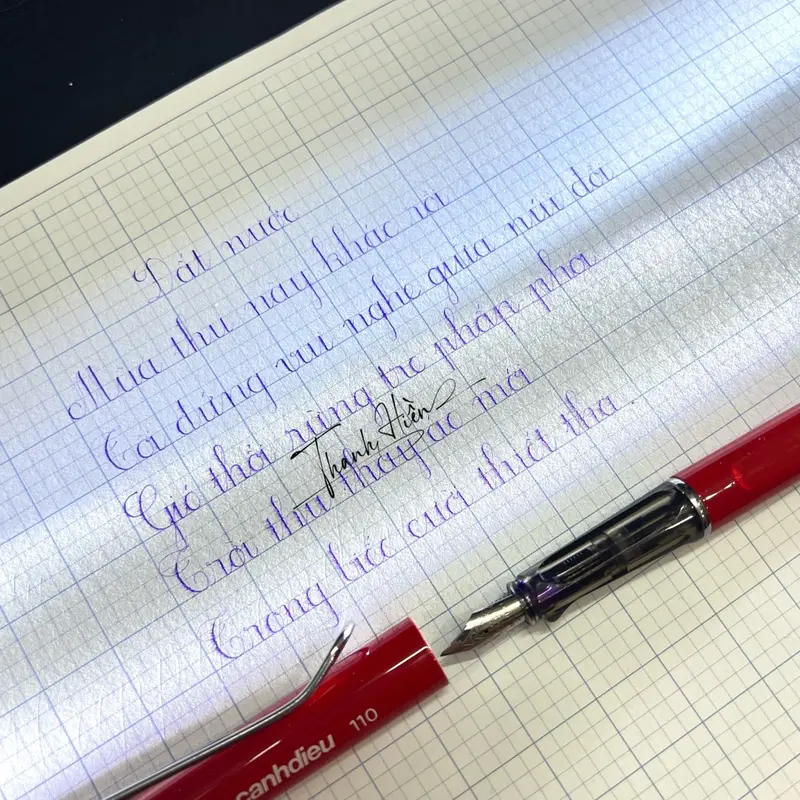 Đất nước
Mùa thu nay khác rồi
Tôi đứng vui nghe giữa núi đồi
Gió thổi rừng tre phấp phới
Trời thu thay áo mới
Trong biếc cười thiết tha.
Thanh Hiền
canhdieu 110